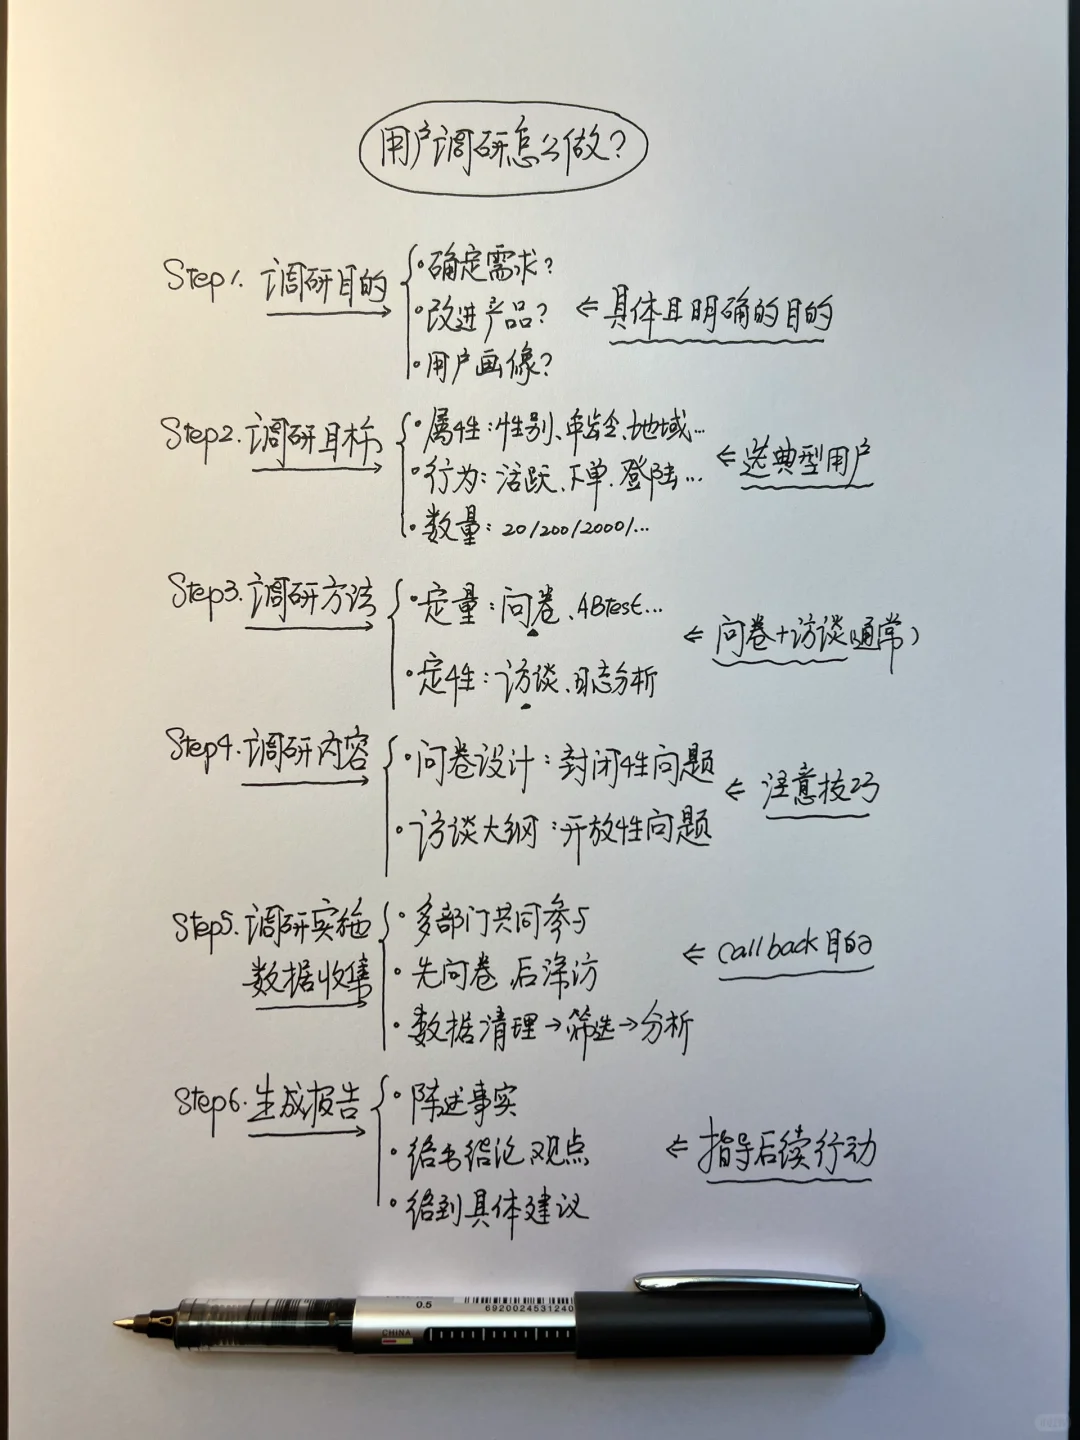 用户调研怎么做?
Step1. 调研目的
·确定需求?
·改进产品?
·用户画像?
⇐ 具体且明确的目的
Step2. 调研目标
·属性:性别、年龄、地域...
·行为:活跃、下单、登陆...
·数量:20/200/2000/...
⇐ 选典型用户
Step3. 调研方法
·定量:问卷、ABtest...
·定性:访谈、日志分析
⇐ 问卷+访谈(通常)
Step4. 调研内容
·问卷设计:封闭性问题
·访谈大纲:开放性问题
⇐ 注意技巧
Step5. 调研实施
数据收集
·多部门共同参与
·先问卷,后深访
·数据清理→筛选→分析
⇐ callback目的
Step6. 生成报告
·陈述事实
·给出结论观点
·给到具体建议
⇐ 指导后续行动
0.5
6920024531240
CHINA